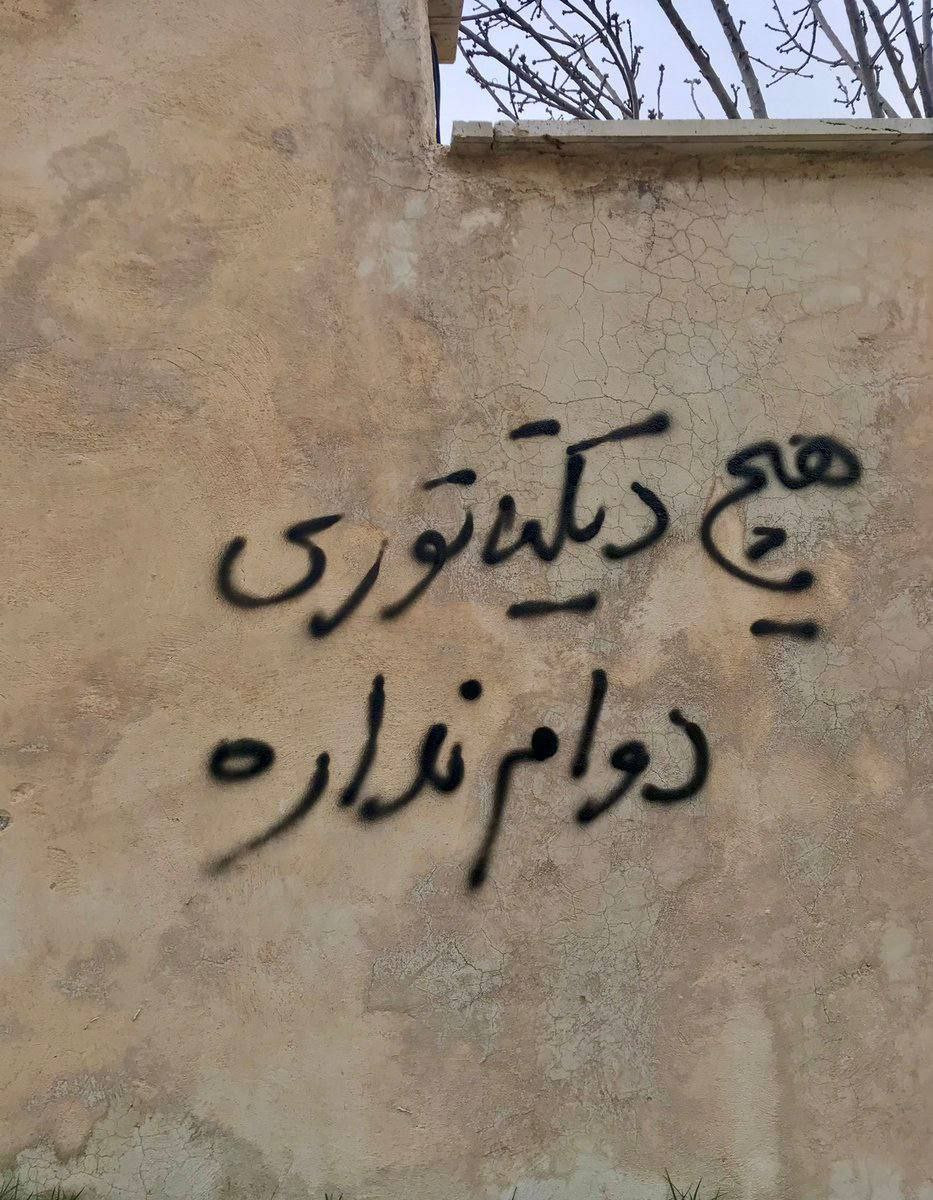 هیچ دیکتاتوری
دوام نداره